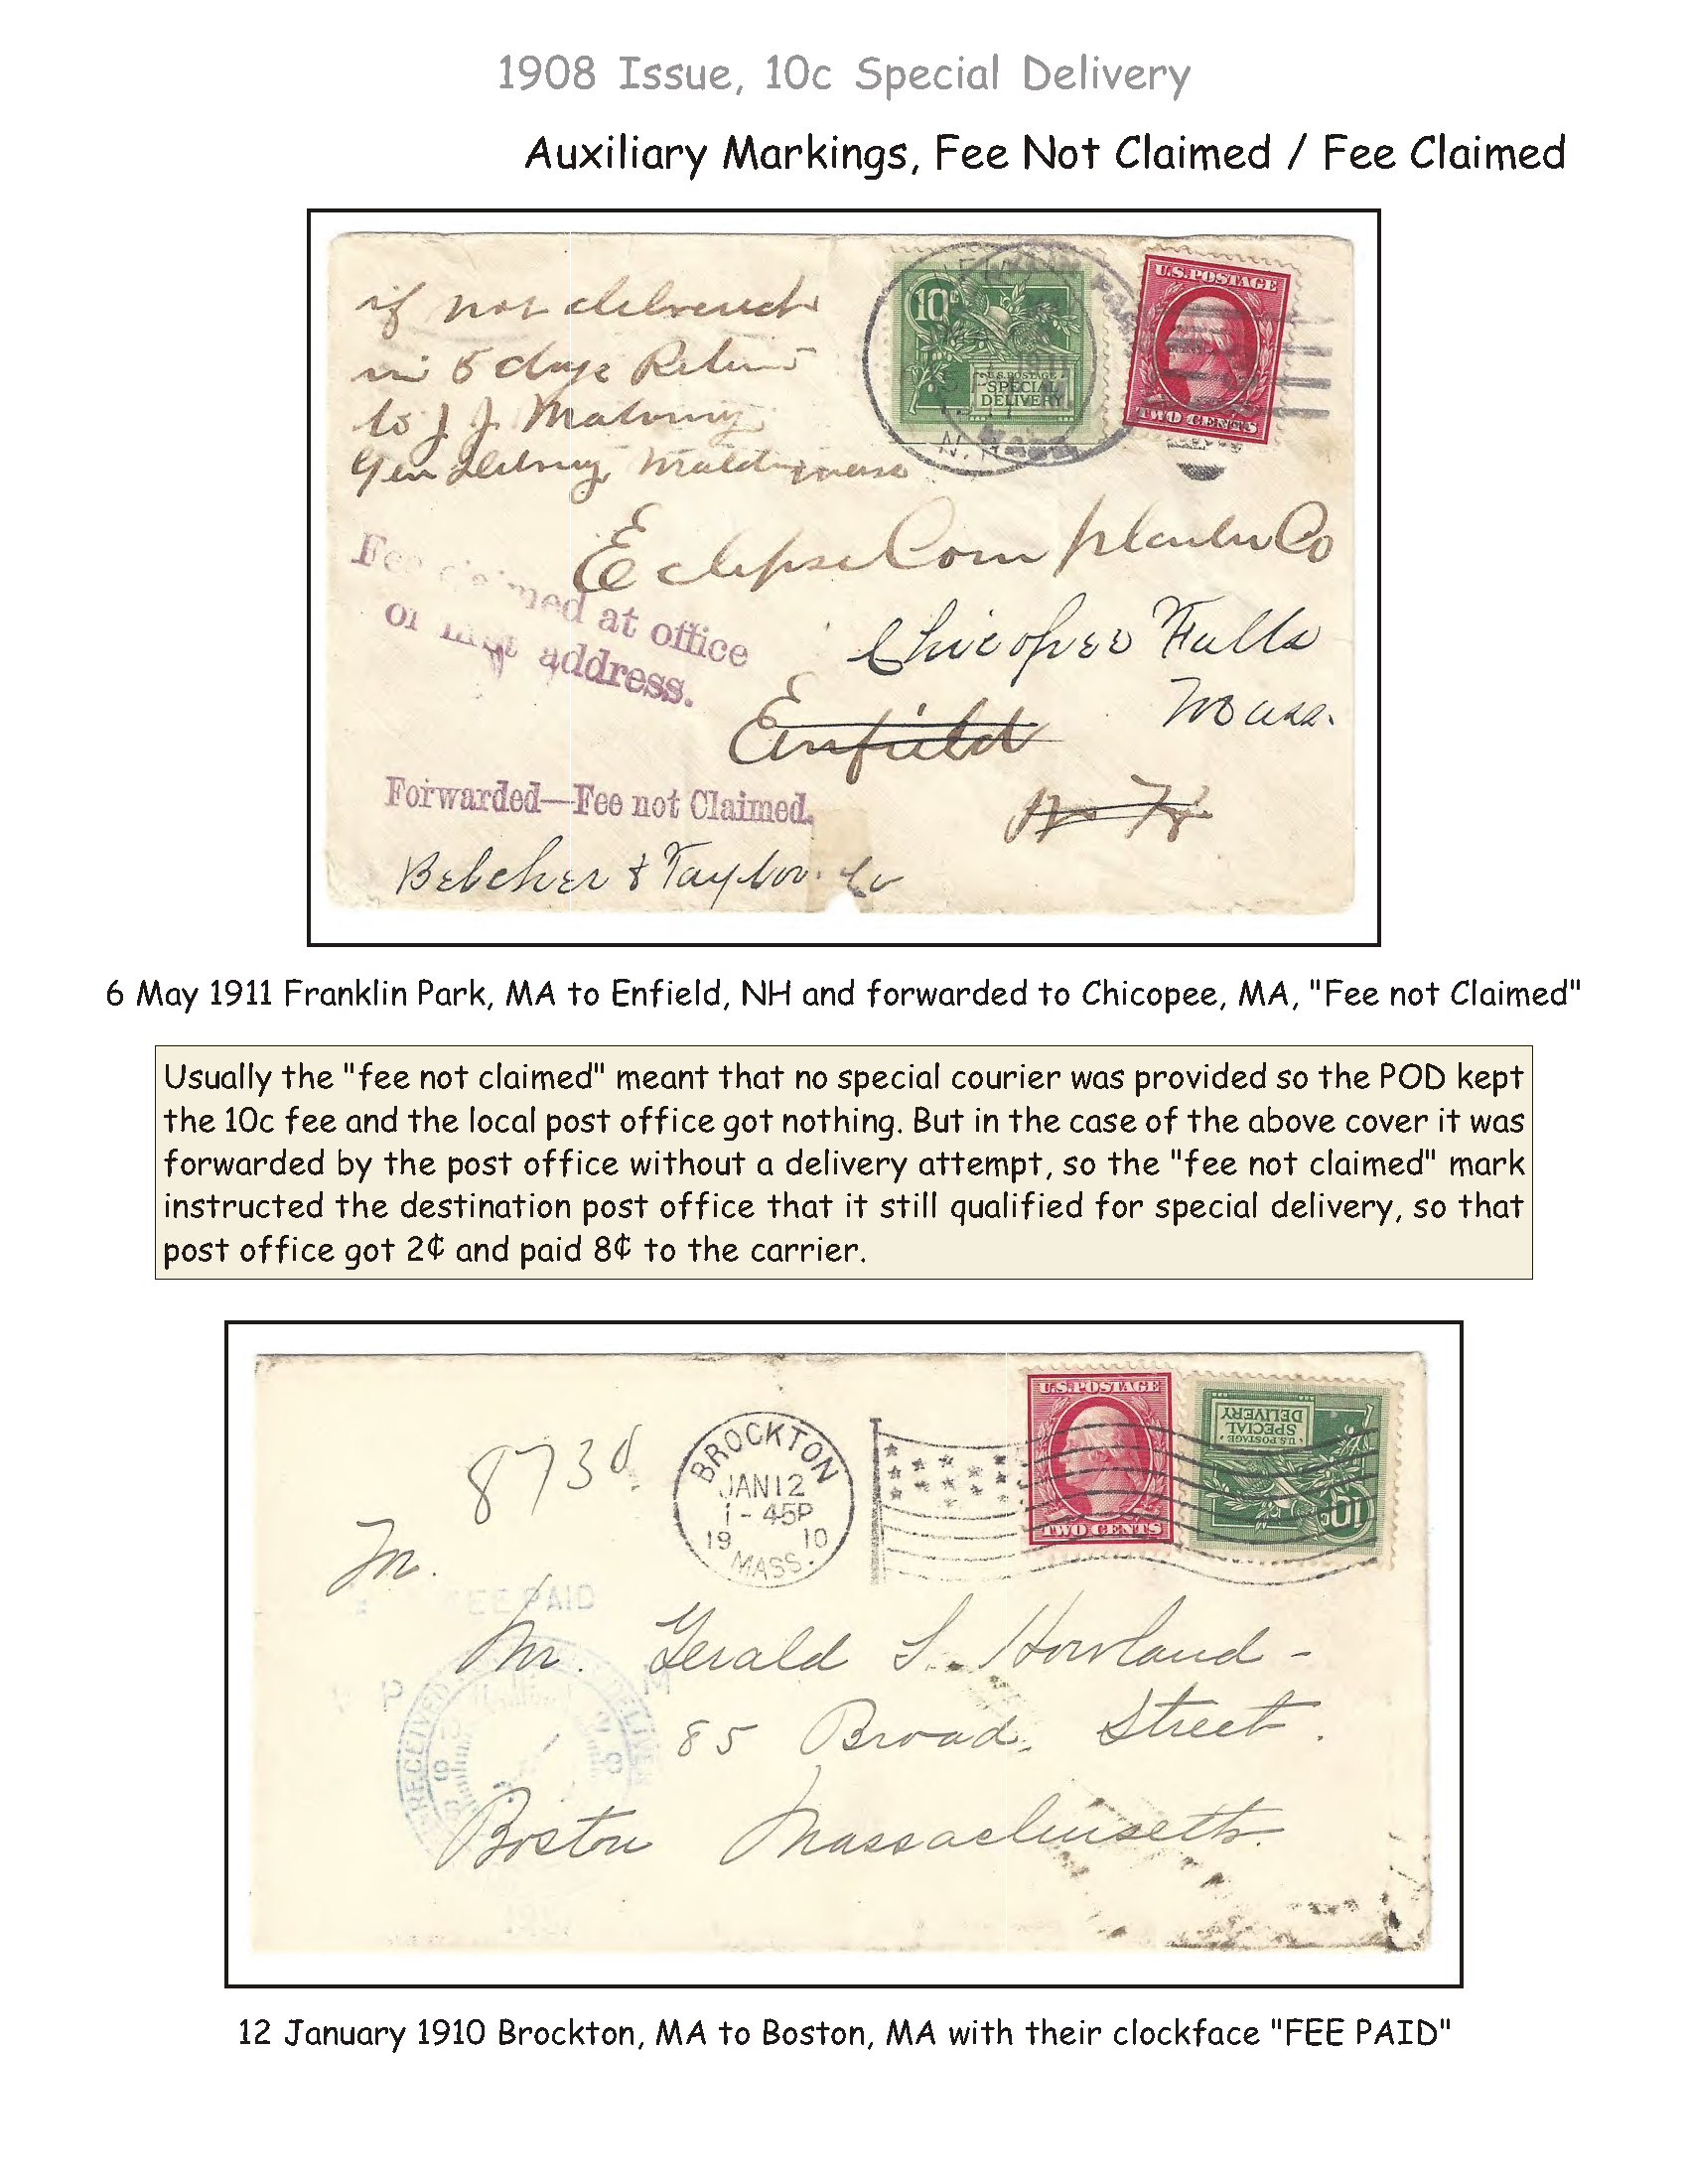 1908 Issue, 10c Special Delivery
Auxiliary Markings, Fee Not Claimed / Fee Claimed
if not delivered
in 5 days Return
to J. J. Maloney
Gen Delivery Malden mass
10c
U.S. POSTAGE
SPECIAL
DELIVERY
N.H.
MASS
U.S. POSTAGE
TWO CENTS
Eclipse Corn Planter Co
Fee claimed at office
of first address.
Chicopee Falls
Mass.
Enfield
N. H.
Forwarded—Fee not Claimed.
Belcher & Taylor. Co
6 May 1911 Franklin Park, MA to Enfield, NH and forwarded to Chicopee, MA, "Fee not Claimed"
Usually the "fee not claimed" meant that no special courier was provided so the POD kept
the 10c fee and the local post office got nothing. But in the case of the above cover it was
forwarded by the post office without a delivery attempt, so the "fee not claimed" mark
instructed the destination post office that it still qualified for special delivery, so that
post office got 2¢ and paid 8¢ to the carrier.
U.S. POSTAGE
TWO CENTS
U.S. POSTAGE
SPECIAL
DELIVERY
10c
BROCKTON
JAN 12
1-45P
19 10
MASS.
873d
M.
FEE PAID
RECEIVED
P M
Mr. Gerald S. Howland -
85 Broad Street.
Boston Massachusetts.
12 January 1910 Brockton, MA to Boston, MA with their clockface "FEE PAID"